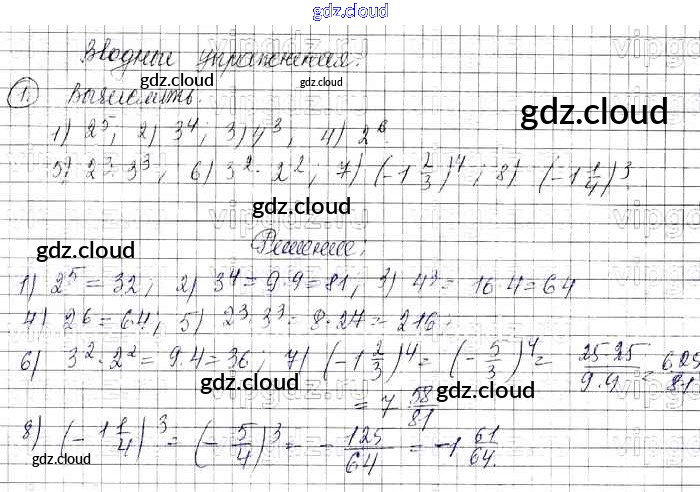 gdz.cloud
Вводные упражнения.
gdz.cloud gdz.cloud
1. Вычислить.
gdz.cloud
1) 2^5; 2) 3^4; 3) 4^3; 4) 2^6.
5) 2^3·3^3; 6) 3^2·2^2; 7) (-1 2/3)^4; 8) (-1 1/4)^3.
gdz.cloud
gdz.cloud Решение.
1) 2^5 = 32; 2) 3^4 = 9·9 = 81, 3) 4^3 = 16·4 = 64
4) 2^6 = 64; 5) 2^3·3^3 = 8·27 = 216.
6) 3^2·2^2 = 9·4 = 36; 7) (-1 2/3)^4 = (-5/3)^4 = 25·25/9·9 = 625/81
gdz.cloud gdz.cloud
= 7 58/81
8) (-1 1/4)^3 = (-5/4)^3 = -125/64 = -1 61/64.
gdz.cloud gdz.cloud